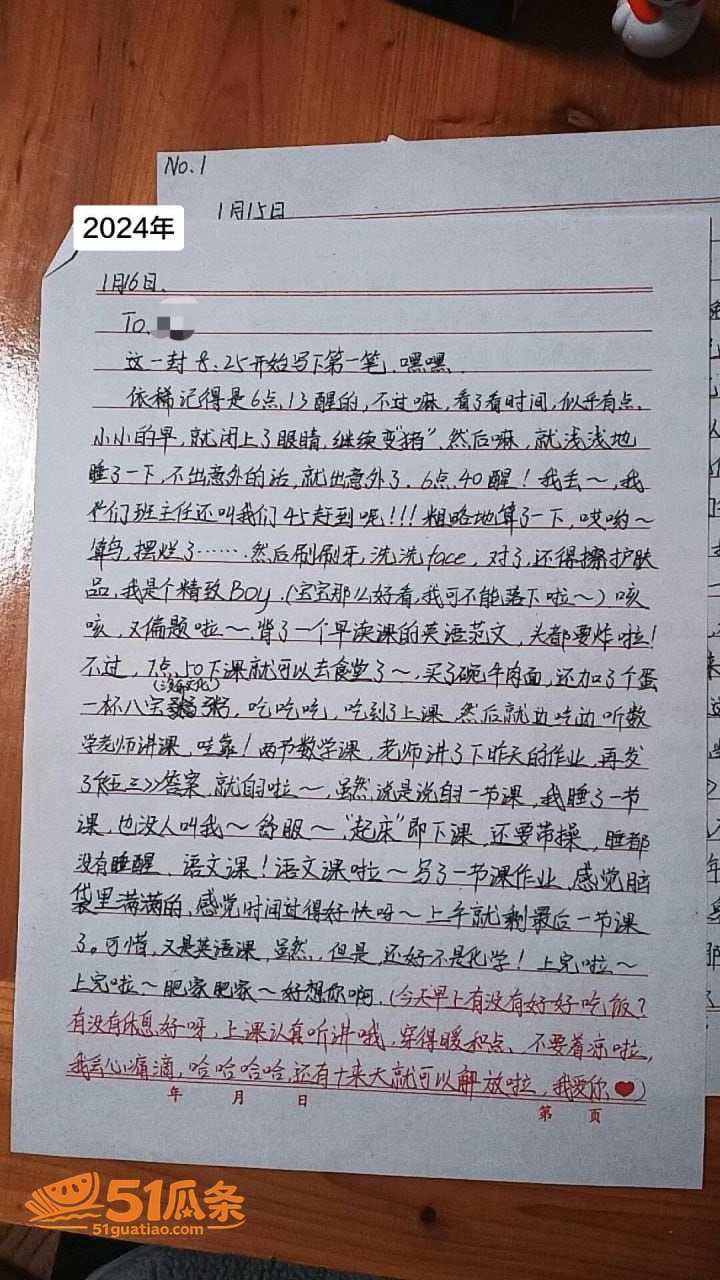 No.1
1月15日
2024年
1月16日.
To.
这一封8.25开始写下第一笔.嘿嘿.
依稀记得是6点13醒的,不过嘛,看了看时间,似乎有点.
小小的早,就闭上了眼睛,继续变"猪".然后嘛,就浅浅地
睡了一下,不出意外的话,就出意外了.6点40醒!我丢～,我
们班主任还叫我们45赶到呢!!!粗略地算了一下,哎哟～
算鸟,摆烂了……然后刷刷牙,洗洗face,对了,还得擦护肤
品,我是个精致Boy.(宝宝那么好看,我可不能落下啦～)咳
咳,又偏题啦～.背了一个早读课的英语范文,头都要炸啦!
不过,7点50下课就可以去食堂了～,买了碗牛肉面,还加了个蛋
(没文化)
一杯八宝粥,吃吃吃,吃到了上课.然后就边吃边听数
学老师讲课,哇靠!两节数学课,老师讲了下昨天的作业,再发
了答案,就自习啦～,虽然说是说自习一节课,我睡了一节
课,也没人叫我～舒服～,"起床"即下课,还要带操,睡都
没有睡醒、语文课!语文课啦～写了一节课作业,感觉脑
袋里满满的,感觉时间过得好快呀～上午就剩最后一节课
了。可惜,又是英语课,虽然,但是,还好不是化学!上完啦～
上完啦～肥家肥家～好想你啊.(今天早上有没有好好吃饭?
有没有休息好呀,上课认真听讲哦,穿得暖和点、不要着凉啦,
我会心痛滴,哈哈哈哈,还有十来天就可以解放啦,我爱你❤)
年 月 日
第 页
51瓜条
51guatiao.com